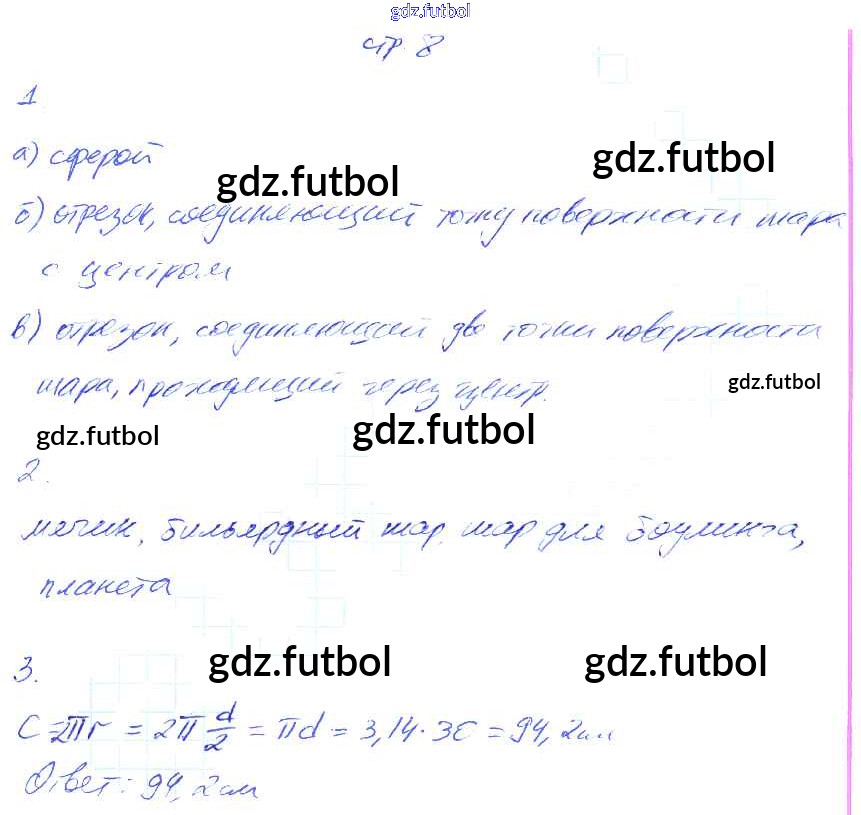 gdz.futbol
стр. 8
1.
а) сферой
gdz.futbol
gdz.futbol
б) отрезок, соединяющий точку поверхности шара
с центром
в) отрезок, соединяющий две точки поверхности
шара, проходящий через центр.
gdz.futbol
gdz.futbol
gdz.futbol
2.
мячик, бильярдный шар, шар для боулинга,
планета
3.
gdz.futbol
gdz.futbol
C = 2πr = 2π d/2 = πd = 3,14 · 30 = 94,2см
Ответ: 94,2см